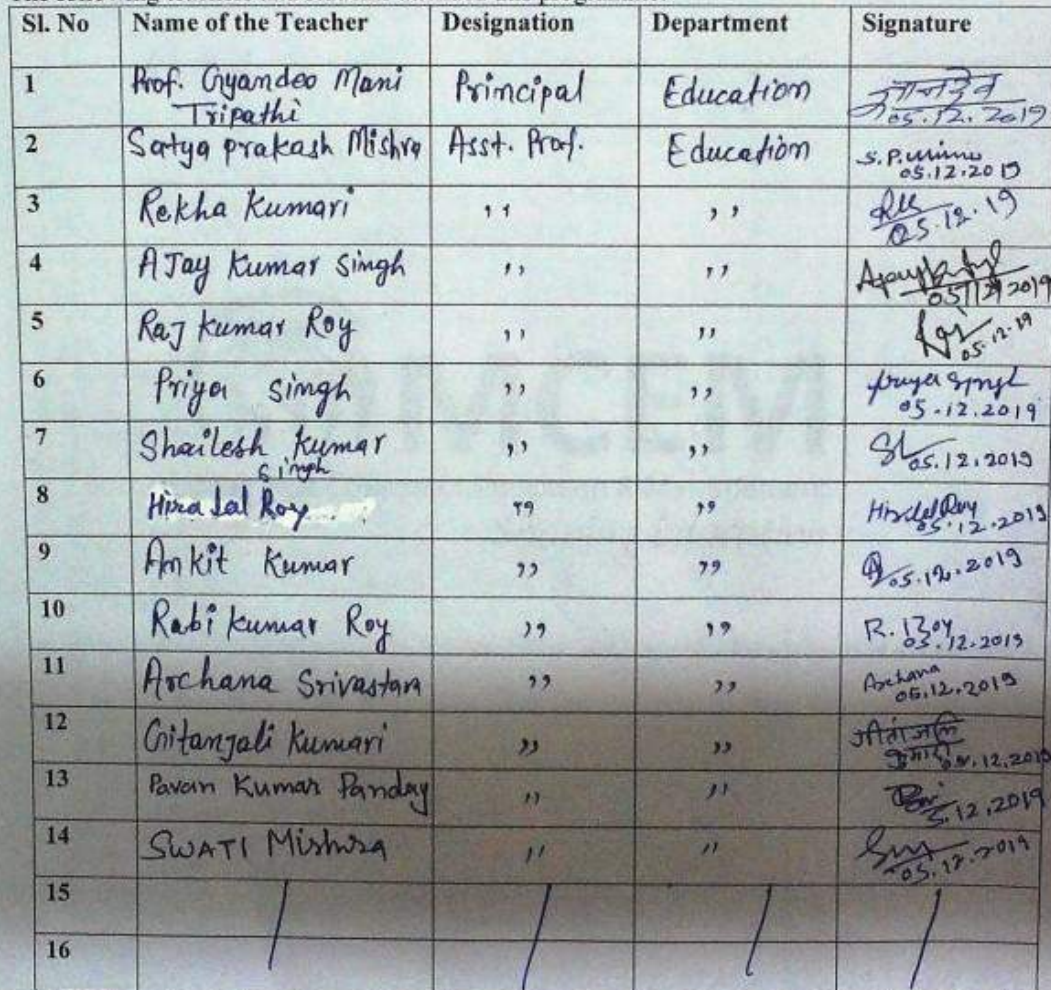 Sl. No Name of the Teacher Designation Department Signature
1 Prof. Gyandeo Mani Tripathi Principal Education ज्ञानदेव 05.12.2019
2 Satya prakash Mishra Asst. Prof. Education S.P. 05.12.2019
3 Rekha Kumari ,, ,, 05.12.19
4 AJay Kumar Singh ,, ,, 05/12/2019
5 Raj kumar Roy ,, ,, 05.12.19
6 Priya singh ,, ,, priya singh 05.12.2019
7 Shailesh Kumar Singh ,, ,, 05.12.2019
8 Hira Lal Roy ,, ,, Hiralal Roy 05.12.2019
9 Ankit Kumar ,, ,, 05.12.2019
10 Rabi kumar Roy ,, ,, R. Roy 05.12.2019
11 Archana Srivastava ,, ,, Archana 05.12.2019
12 Gitanjali Kumari ,, ,, गीतांजलि कुमारी 05.12.2019
13 Pavan Kumar Panday ,, ,, 5.12.2019
14 SWATI Mishra ,, ,, 05.12.2019
15
16